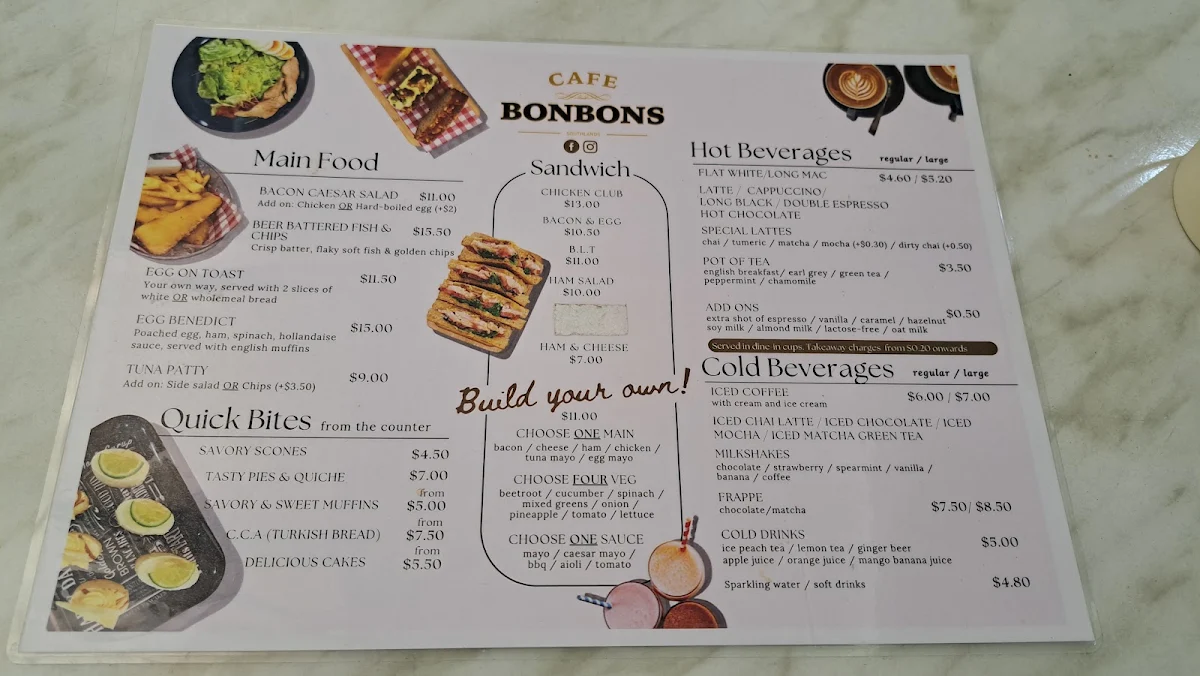 CAFE
BONBONS
Main Food
BACON CAESAR SALAD $11.00
Add on: Chicken OR Hard-boiled egg (+$2)
BEER BATTERED FISH & $15.50
CHIPS
Crisp batter, flaky soft fish & golden chips
EGG ON TOAST $11.50
Your own way, served with 2 slices of
white OR wholemeal bread
EGG BENEDICT $15.00
Poached egg, ham, spinach, hollandaise
sauce, served with english muffins
TUNA PATTY $9.00
Add on: Side salad OR Chips (+$3.50)
Quick Bites from the counter
SAVORY SCONES $4.50
TASTY PIES & QUICHE $7.00
from
SAVORY & SWEET MUFFINS $5.00
from
C.C.A (TURKISH BREAD) $7.50
from
DELICIOUS CAKES $5.50
Sandwich
CHICKEN CLUB
$13.00
BACON & EGG
$10.50
B.L.T
$11.00
HAM SALAD
$10.00
HAM & CHEESE
$7.00
Build your own!
$11.00
CHOOSE ONE MAIN
bacon / cheese / ham / chicken /
tuna mayo / egg mayo
CHOOSE FOUR VEG
beetroot / cucumber / spinach /
mixed greens / onion /
pineapple / tomato / lettuce
CHOOSE ONE SAUCE
mayo / caesar mayo /
bbq / aioli / tomato
Hot Beverages regular / large
FLAT WHITE/LONG MAC $4.60 / $5.20
LATTE / CAPPUCCINO/
LONG BLACK / DOUBLE ESPRESSO
HOT CHOCOLATE
SPECIAL LATTES
chai / tumeric / matcha / mocha (+$0.30) / dirty chai (+0.50)
POT OF TEA $3.50
english breakfast/ earl grey / green tea /
peppermint / chamomile
ADD ONS $0.50
extra shot of espresso / vanilla / caramel / hazelnut
soy milk / almond milk / lactose-free / oat milk
Served in dine-in cups. Takeaway charges from $0.20 onwards
Cold Beverages regular / large
ICED COFFEE $6.00 / $7.00
with cream and ice cream
ICED CHAI LATTE / ICED CHOCOLATE / ICED
MOCHA / ICED MATCHA GREEN TEA
MILKSHAKES
chocolate / strawberry / spearmint / vanilla /
banana / coffee
FRAPPE $7.50/ $8.50
chocolate/matcha
COLD DRINKS $5.00
ice peach tea / lemon tea / ginger beer
apple juice / orange juice / mango banana juice
Sparkling water / soft drinks $4.80